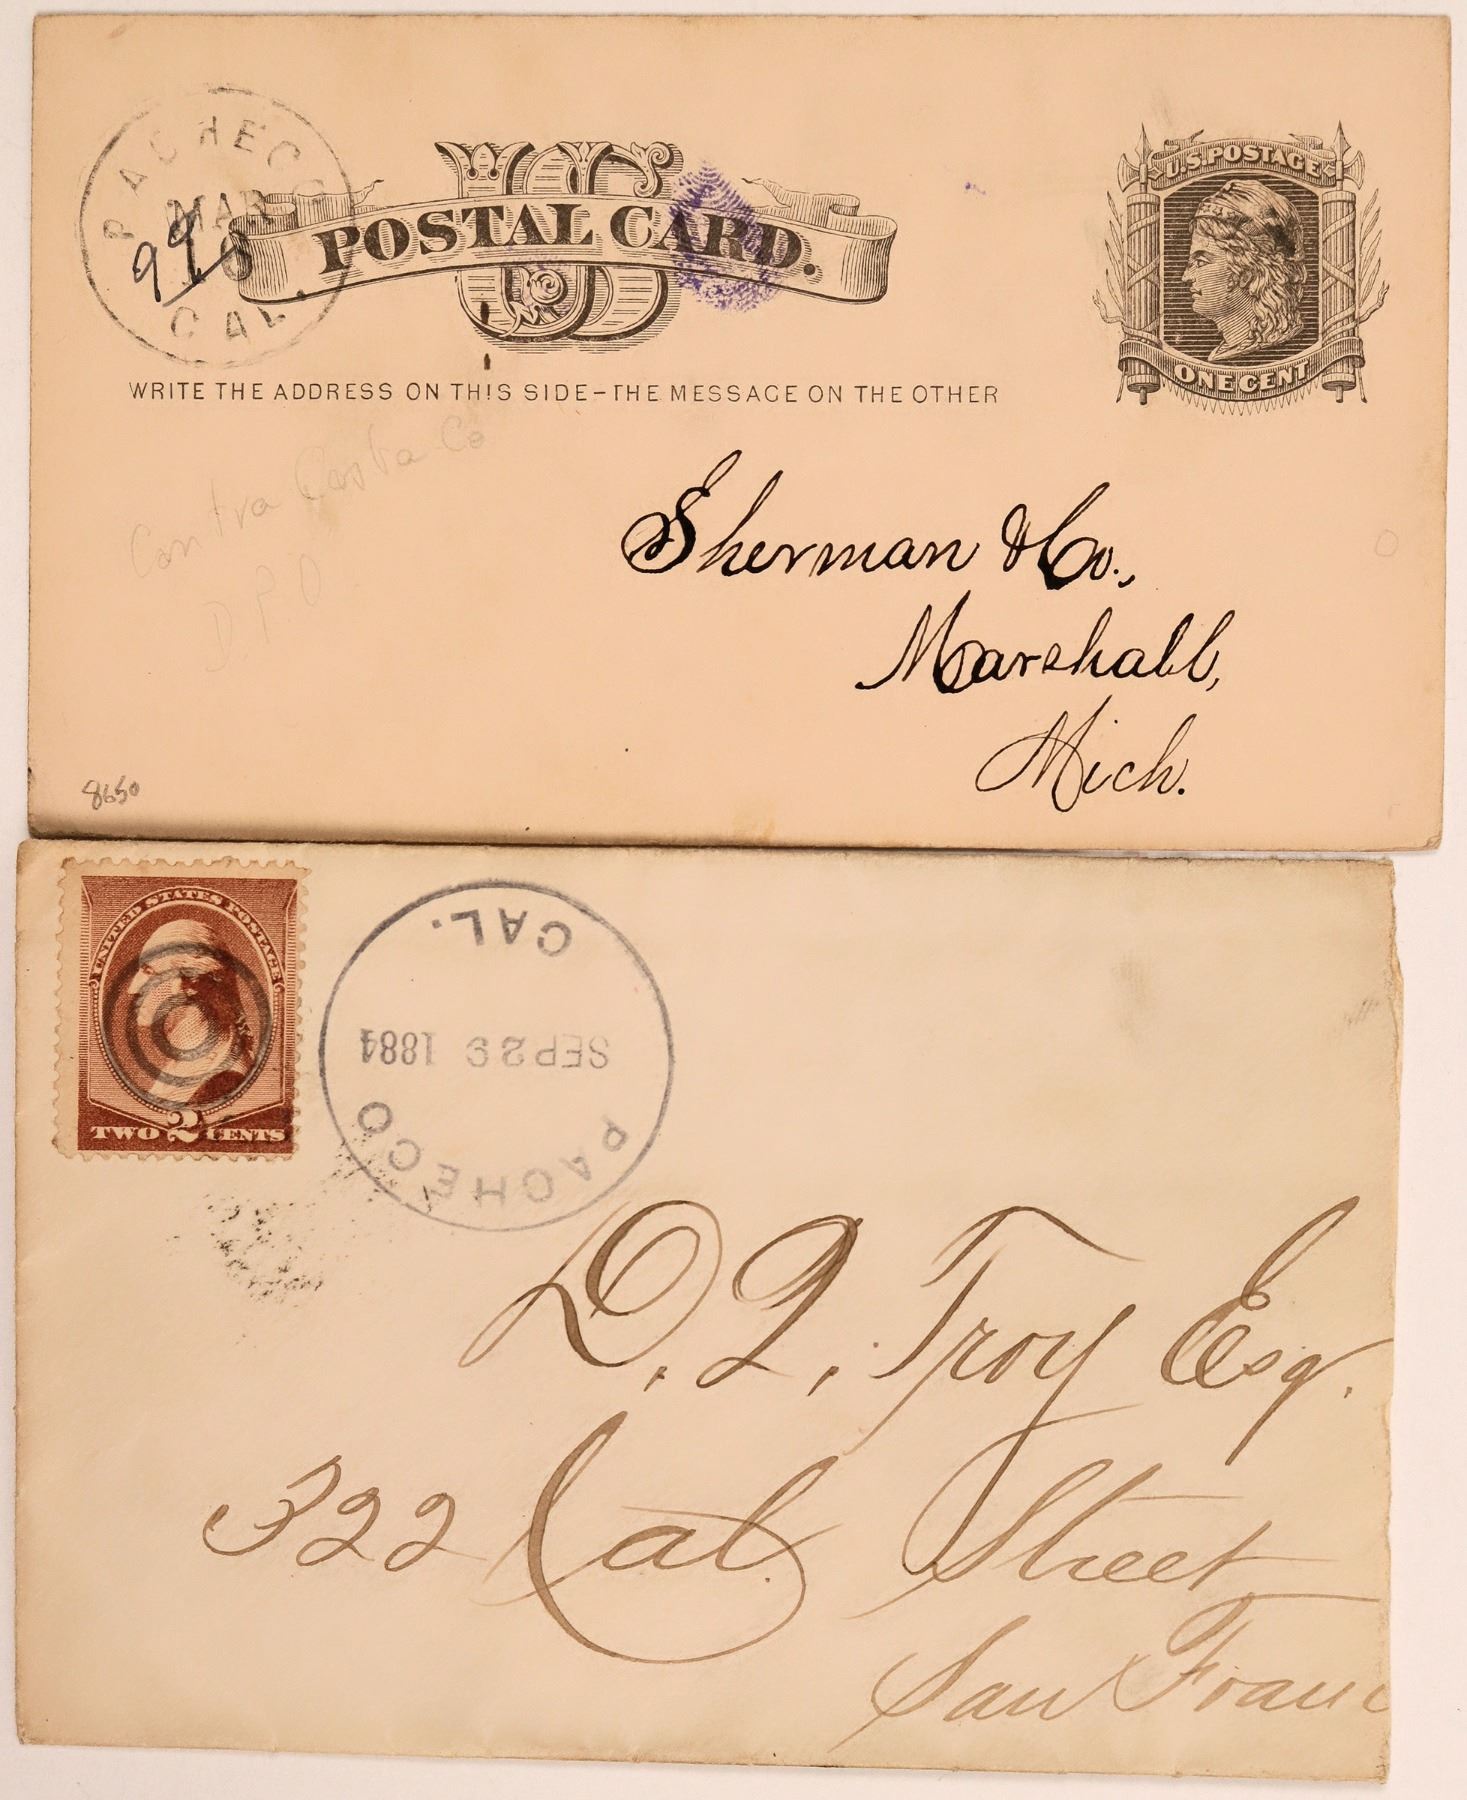 PACHECO
MAR
CAL.
US
POSTAL CARD.
U.S. POSTAGE
ONE CENT
WRITE THE ADDRESS ON THIS SIDE-THE MESSAGE ON THE OTHER
Contra Costa Co
D.P.O
Sherman & Co.,
Marshall,
Mich.
8650
UNITED STATES POSTAGE
2
TWO CENTS
PACHECO
SEP 29 1884
CAL.
D. Q. Troy Esq.
322 Cal. Street
San Franc